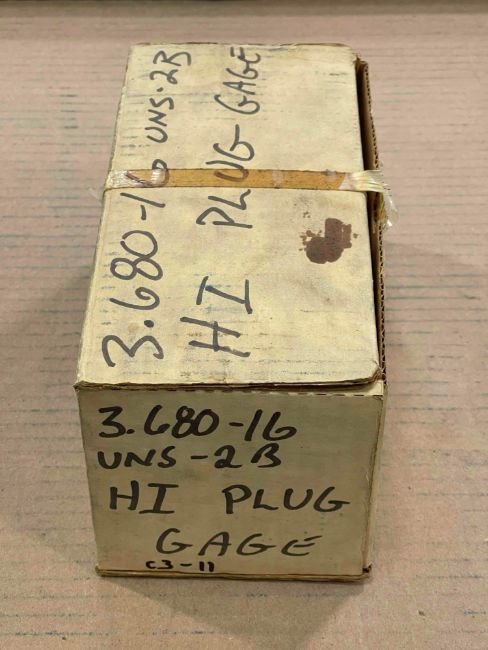 3.680-16 UNS-2B
HI PLUG GAGE
3.680-16
UNS-2B
HI PLUG
GAGE
C3-11